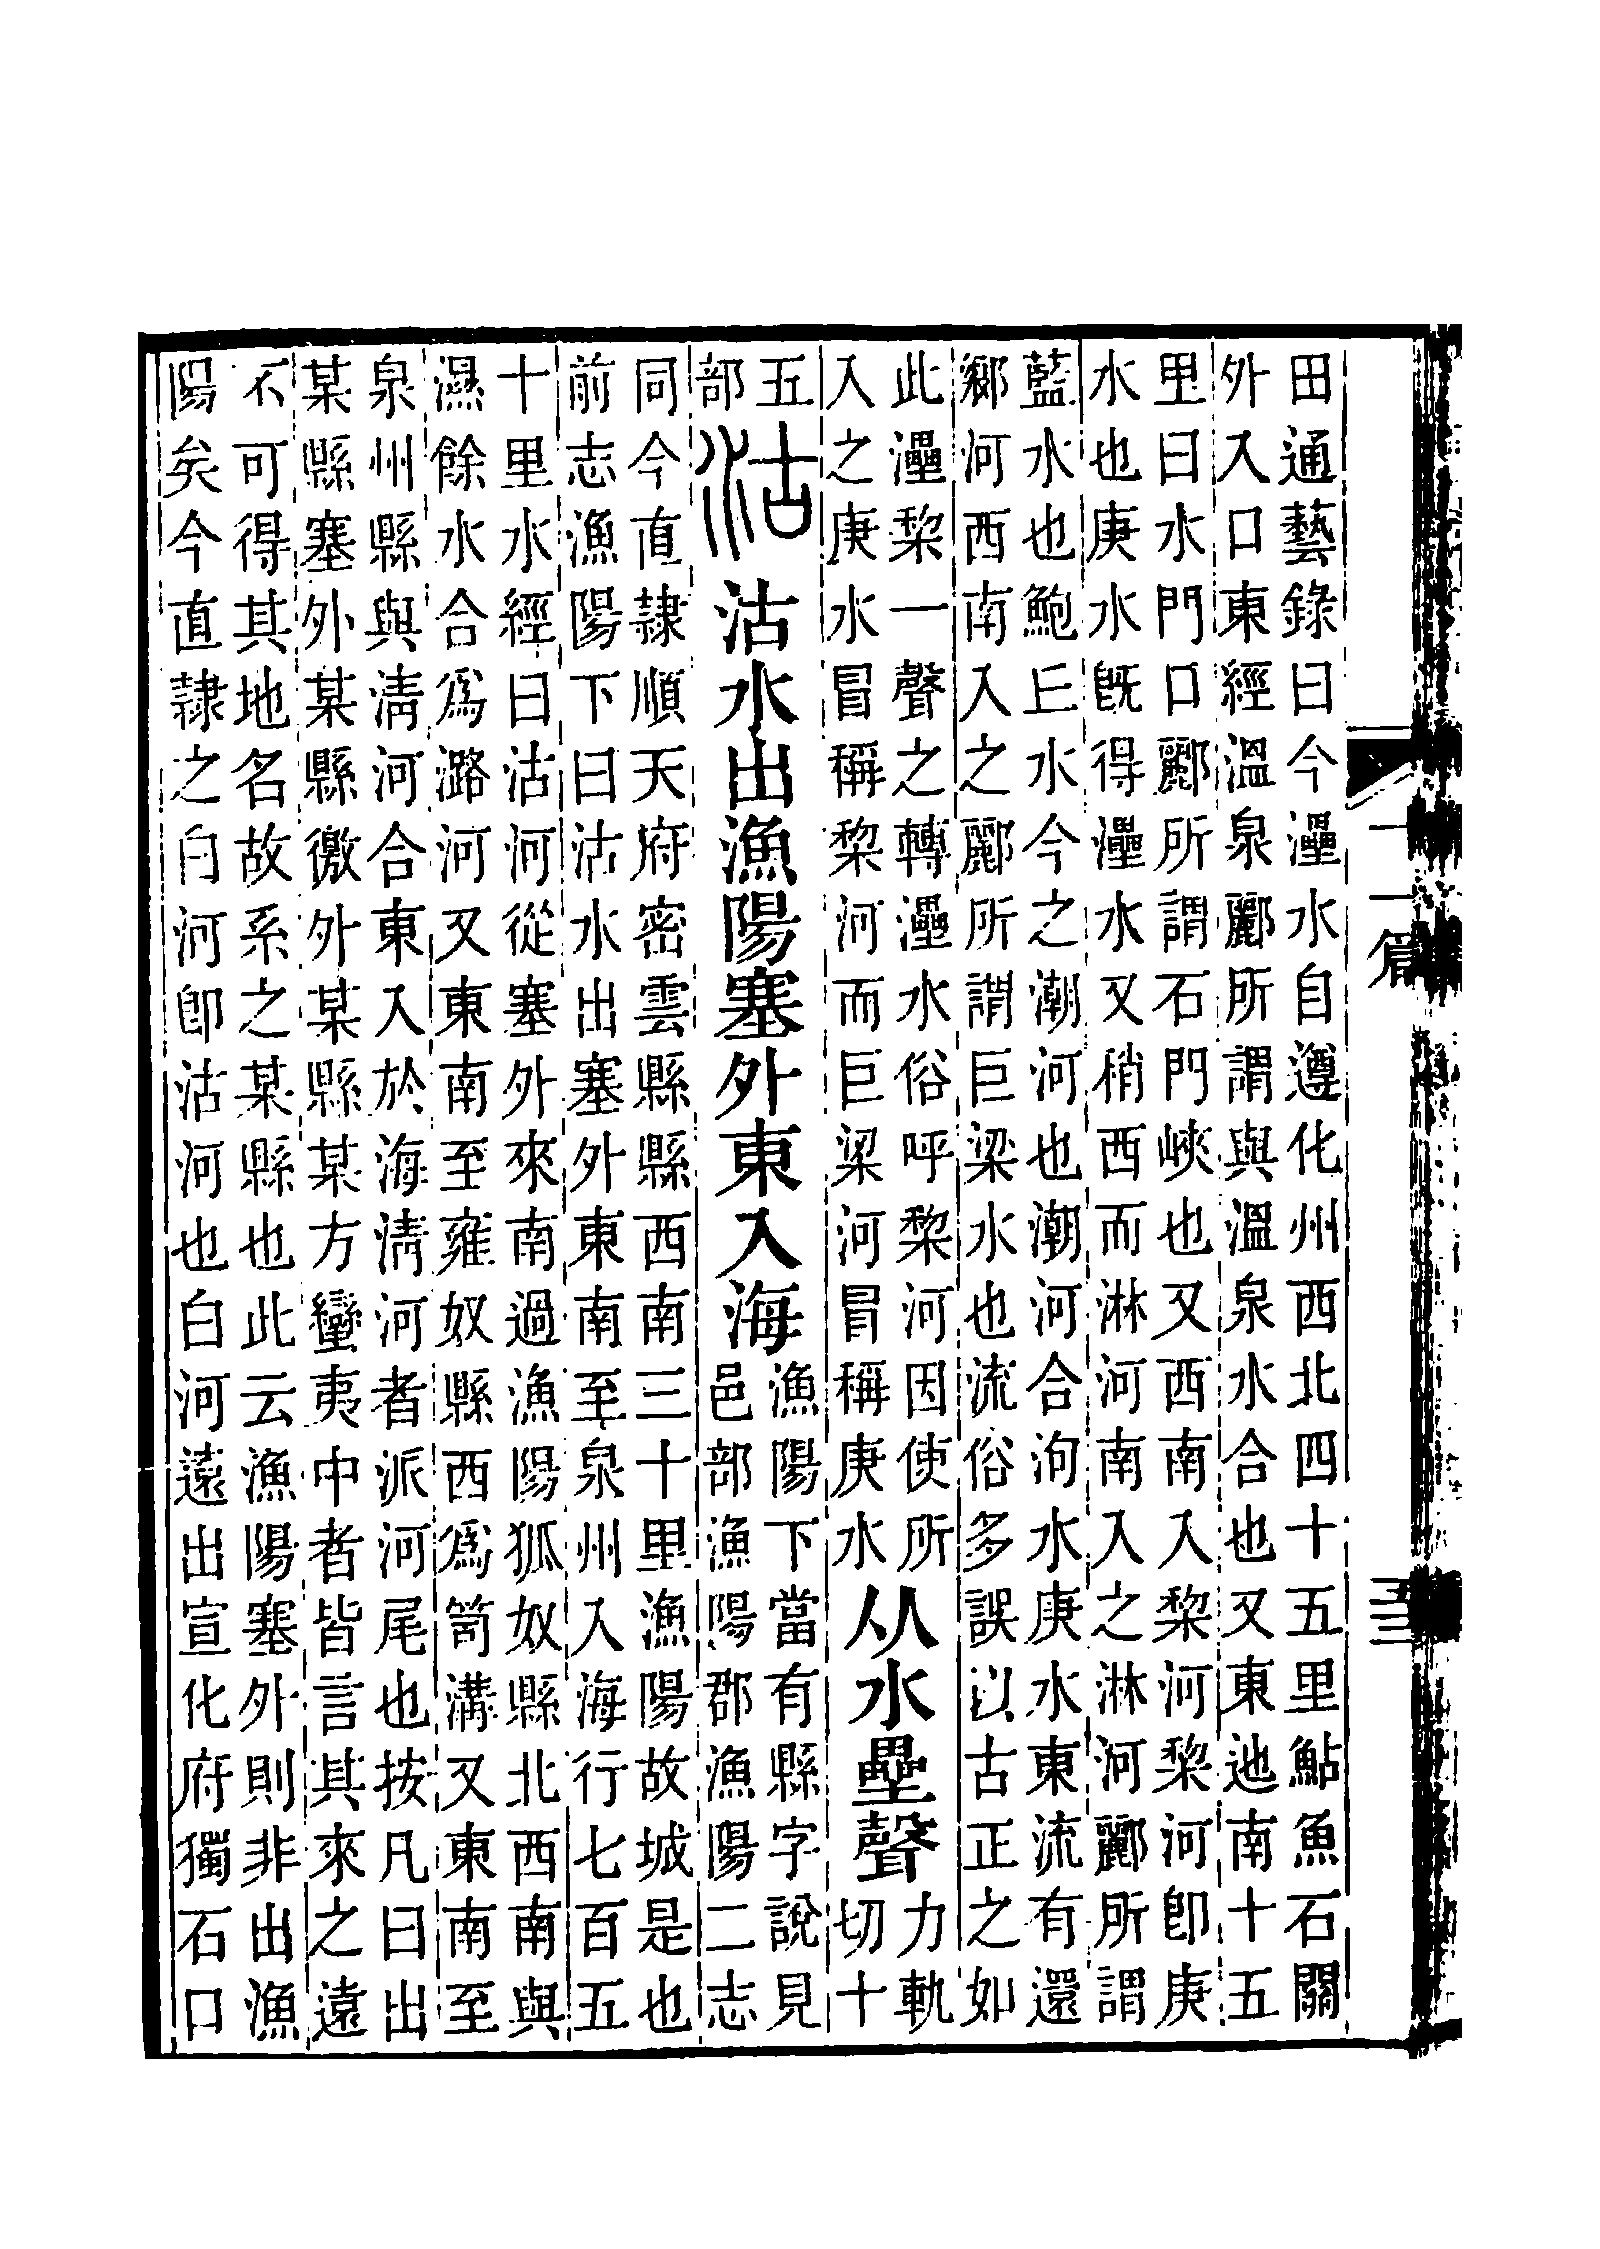 田通藝錄曰今灅水自遵化州西北四十五里鮎魚石關
外入口東經溫泉酈所謂與溫泉水合也又東迆南十五
里曰水門口酈所謂石門峽也又西南入棃河棃河卽庚
水也庚水旣得灅水又稍西而淋河南入之淋河酈所謂
藍水也鮑丘水今之潮河也潮河合泃水庚水東流有還
鄉河西南入之酈所謂巨梁水也流俗多誤以古正之如
此灅棃一聲之轉灅水俗呼棃河因使所
入之庚水冒稱棃河而巨梁河冒稱庚水
从水壘聲
力軌
切十
五
部
沽
沽水出漁陽塞外東入海
漁陽下當有縣字說見
邑部漁陽郡漁陽二志
同今直隸順天府密雲縣縣西南三十里漁陽故城是也
前志漁陽下曰沽水出塞外東南至泉州入海行七百五
十里水經曰沽河從塞外來南過漁陽狐奴縣北西南與
濕餘水合爲潞河又東南至雍奴縣西爲笥溝又東南至
泉州縣與淸河合東入於海淸河者派河尾也按凡曰出
某縣塞外某縣徼外某縣某方蠻夷中者皆言其來之遠
不可得其地名故系之某縣也此云漁陽塞外則非出漁
陽矣今直隸之白河卽沽河也白河遠出宣化府獨石口